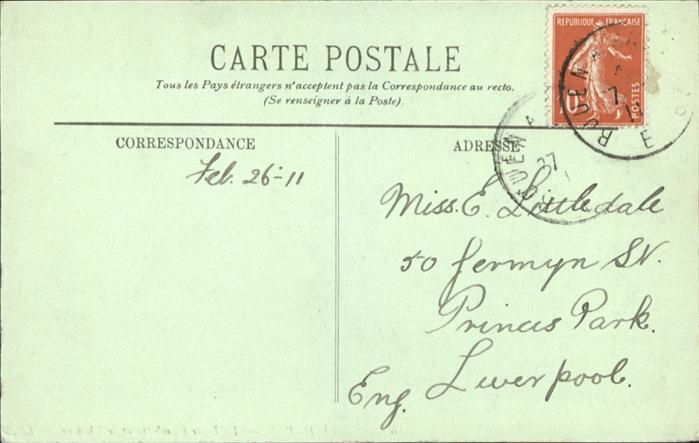 CARTE POSTALE
Tous les Pays étrangers n'acceptent pas la Correspondance au recto.
(Se renseigner à la Poste).
REPUBLIQUE FRANÇAISE
10
POSTES
ROUEN
E
ROUEN A
27
CORRESPONDANCE
Feb. 26-11
ADRESSE
Miss. E. Littledale
50 Jermyn St.
Princes Park.
Liverpool.
Eng.